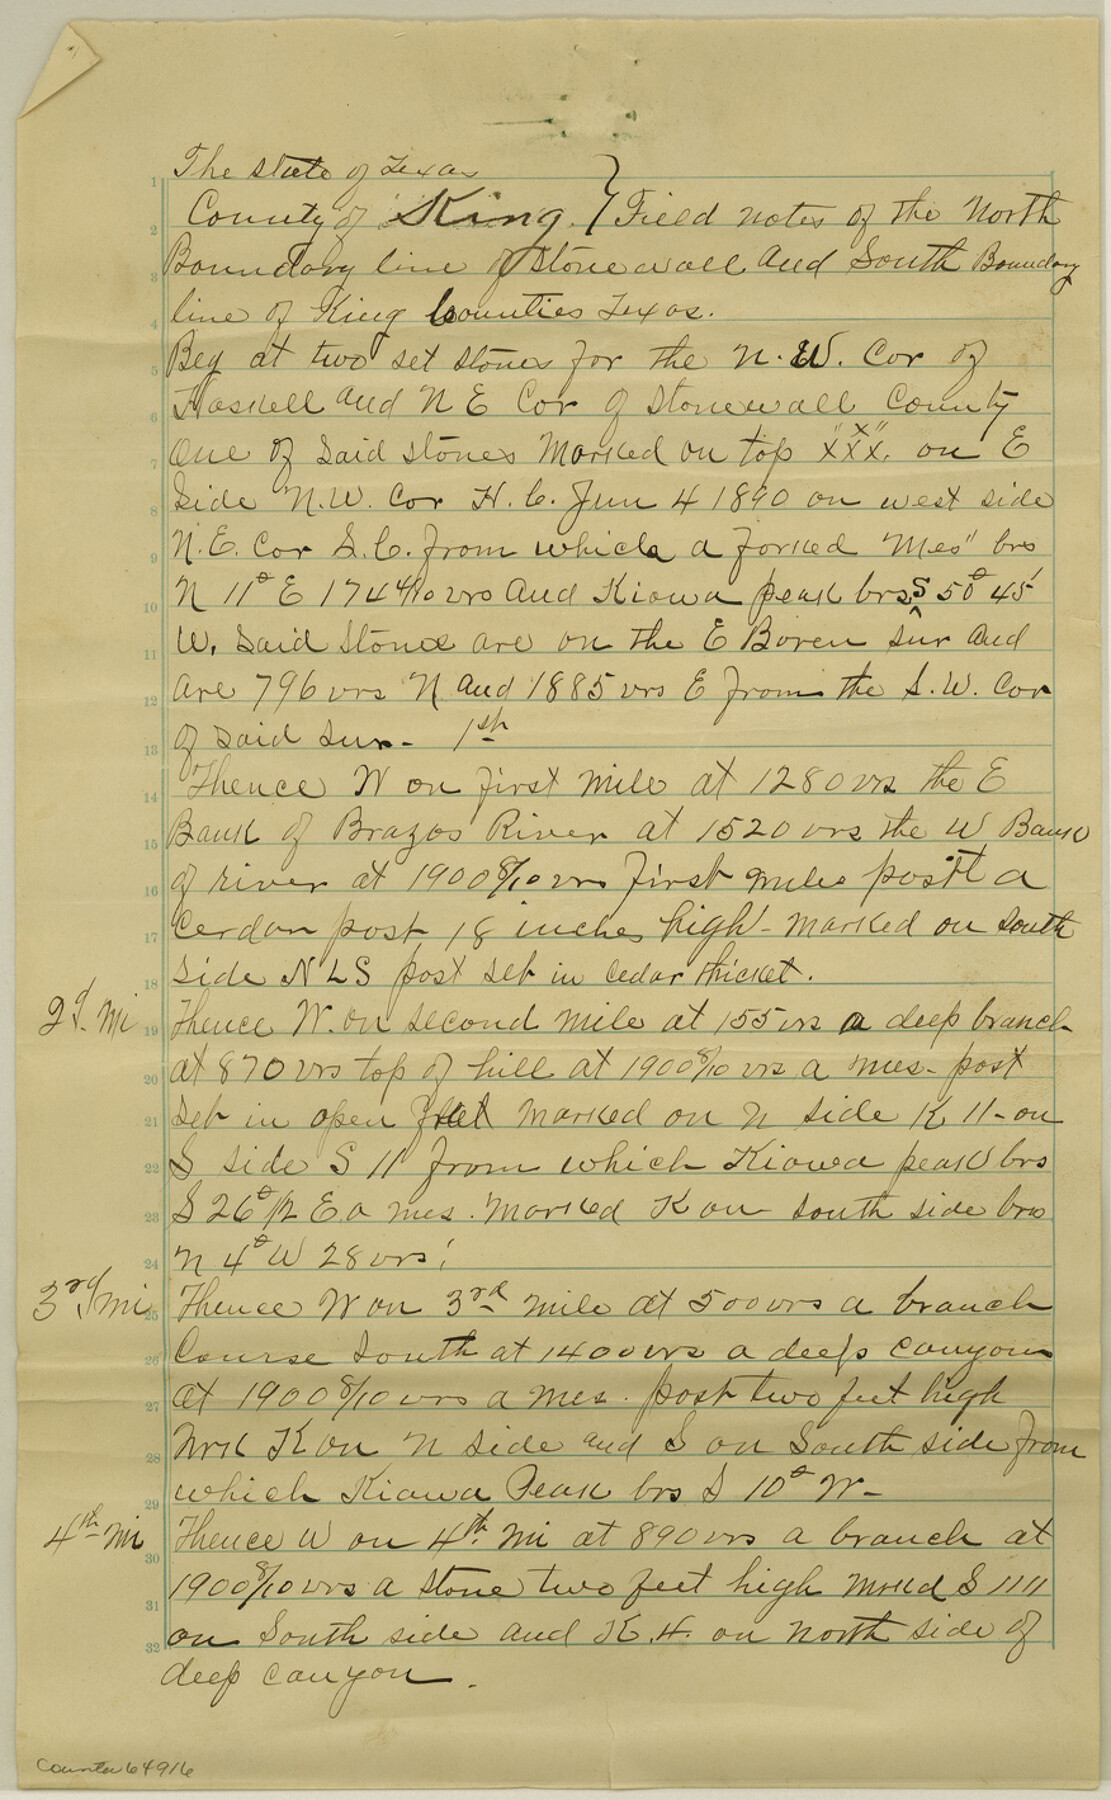 The State of Texas
County of King. } Field notes of the North
Boundary line of Stonewall and South Boundary
line of King Counties Texas.
Beg at two set stones for the N.W. Cor of
Haskell and N E Cor of Stonewall County
One of said stones Marked on top "XXX" on E
Side N.W. Cor H.C. Jun 4 1890 on west side
N.E. Cor S.C. from which a forked "Mes" brs
N 11° E 174 4/10 vrs and Kiowa peak brs S 50° 45'
W. Said Stones are on the E Boren sur and
are 796 vrs N and 1885 vrs E from the S.W. Cor
of said sur- 1st
Thence W on first mile at 1280 vrs the E
Bank of Brazos River at 1520 vrs the W Bank
of river at 1900 8/10 vrs first mile post a
Cerdar post 18 inches high - marked on south
side N L S post set in cedar thicket.
2d. Mi Thence W. on second mile at 155 vrs a deep branch
at 870 vrs top of hill at 1900 8/10 vrs a mes- post
set in open marked on N side K 11 - on
S side S 11 from which Kiowa peak brs
S 26° 1/2 E a mes. marked K on south side brs
N 4° W 28 vrs.
3rd mi Thence W on 3rd mile at 500 vrs a branch
Course South at 1400 vrs a deep canyon
at 1900 8/10 vrs a mes. post two feet high
Mrk K on N side and S on South side from
which Kiowa Peak brs S 10° W-
4th mi Thence W on 4th. mi at 890 vrs a branch at
1900 8/10 vrs a stone two feet high mrked S 1111
on South side and K.4. on north side of
deep canyon.
1
2
3
4
5
6
7
8
9
10
11
12
13
14
15
16
17
18
19
20
21
22
23
24
25
26
27
28
29
30
31
32
Counter 64916